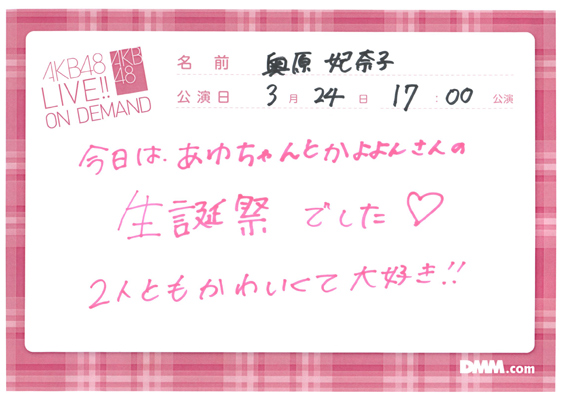 AKB48
LIVE!!
ON DEMAND
AKB
48
名前 奥原 妃奈子
公演日 3月24日 17:00 公演
今日は、あゆちゃんとかよよんさんの
生誕祭 でした♡
2人ともかわいくて大好き!!
DMM.com